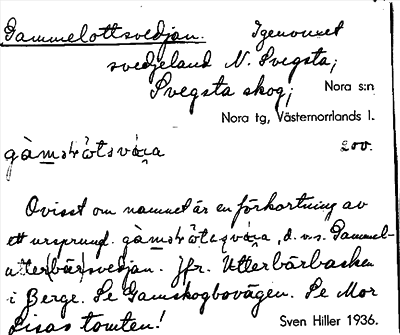 Gammelottsvedjan. Igenvuxet
svedjeland N. Svegsta,
Svegsta skog; Nora s:n
Nora tg, Västernorrlands l.
200.
Ovisst om namnet är en förkortning av
ett ursprungl. d.v.s. Gammel-
utter(bär)svedjan. Jfr. Utterbärbacken
i Berge. Se Gamskogbovägen. Se Mor
Lisas tomten! Sven Hiller 1936.